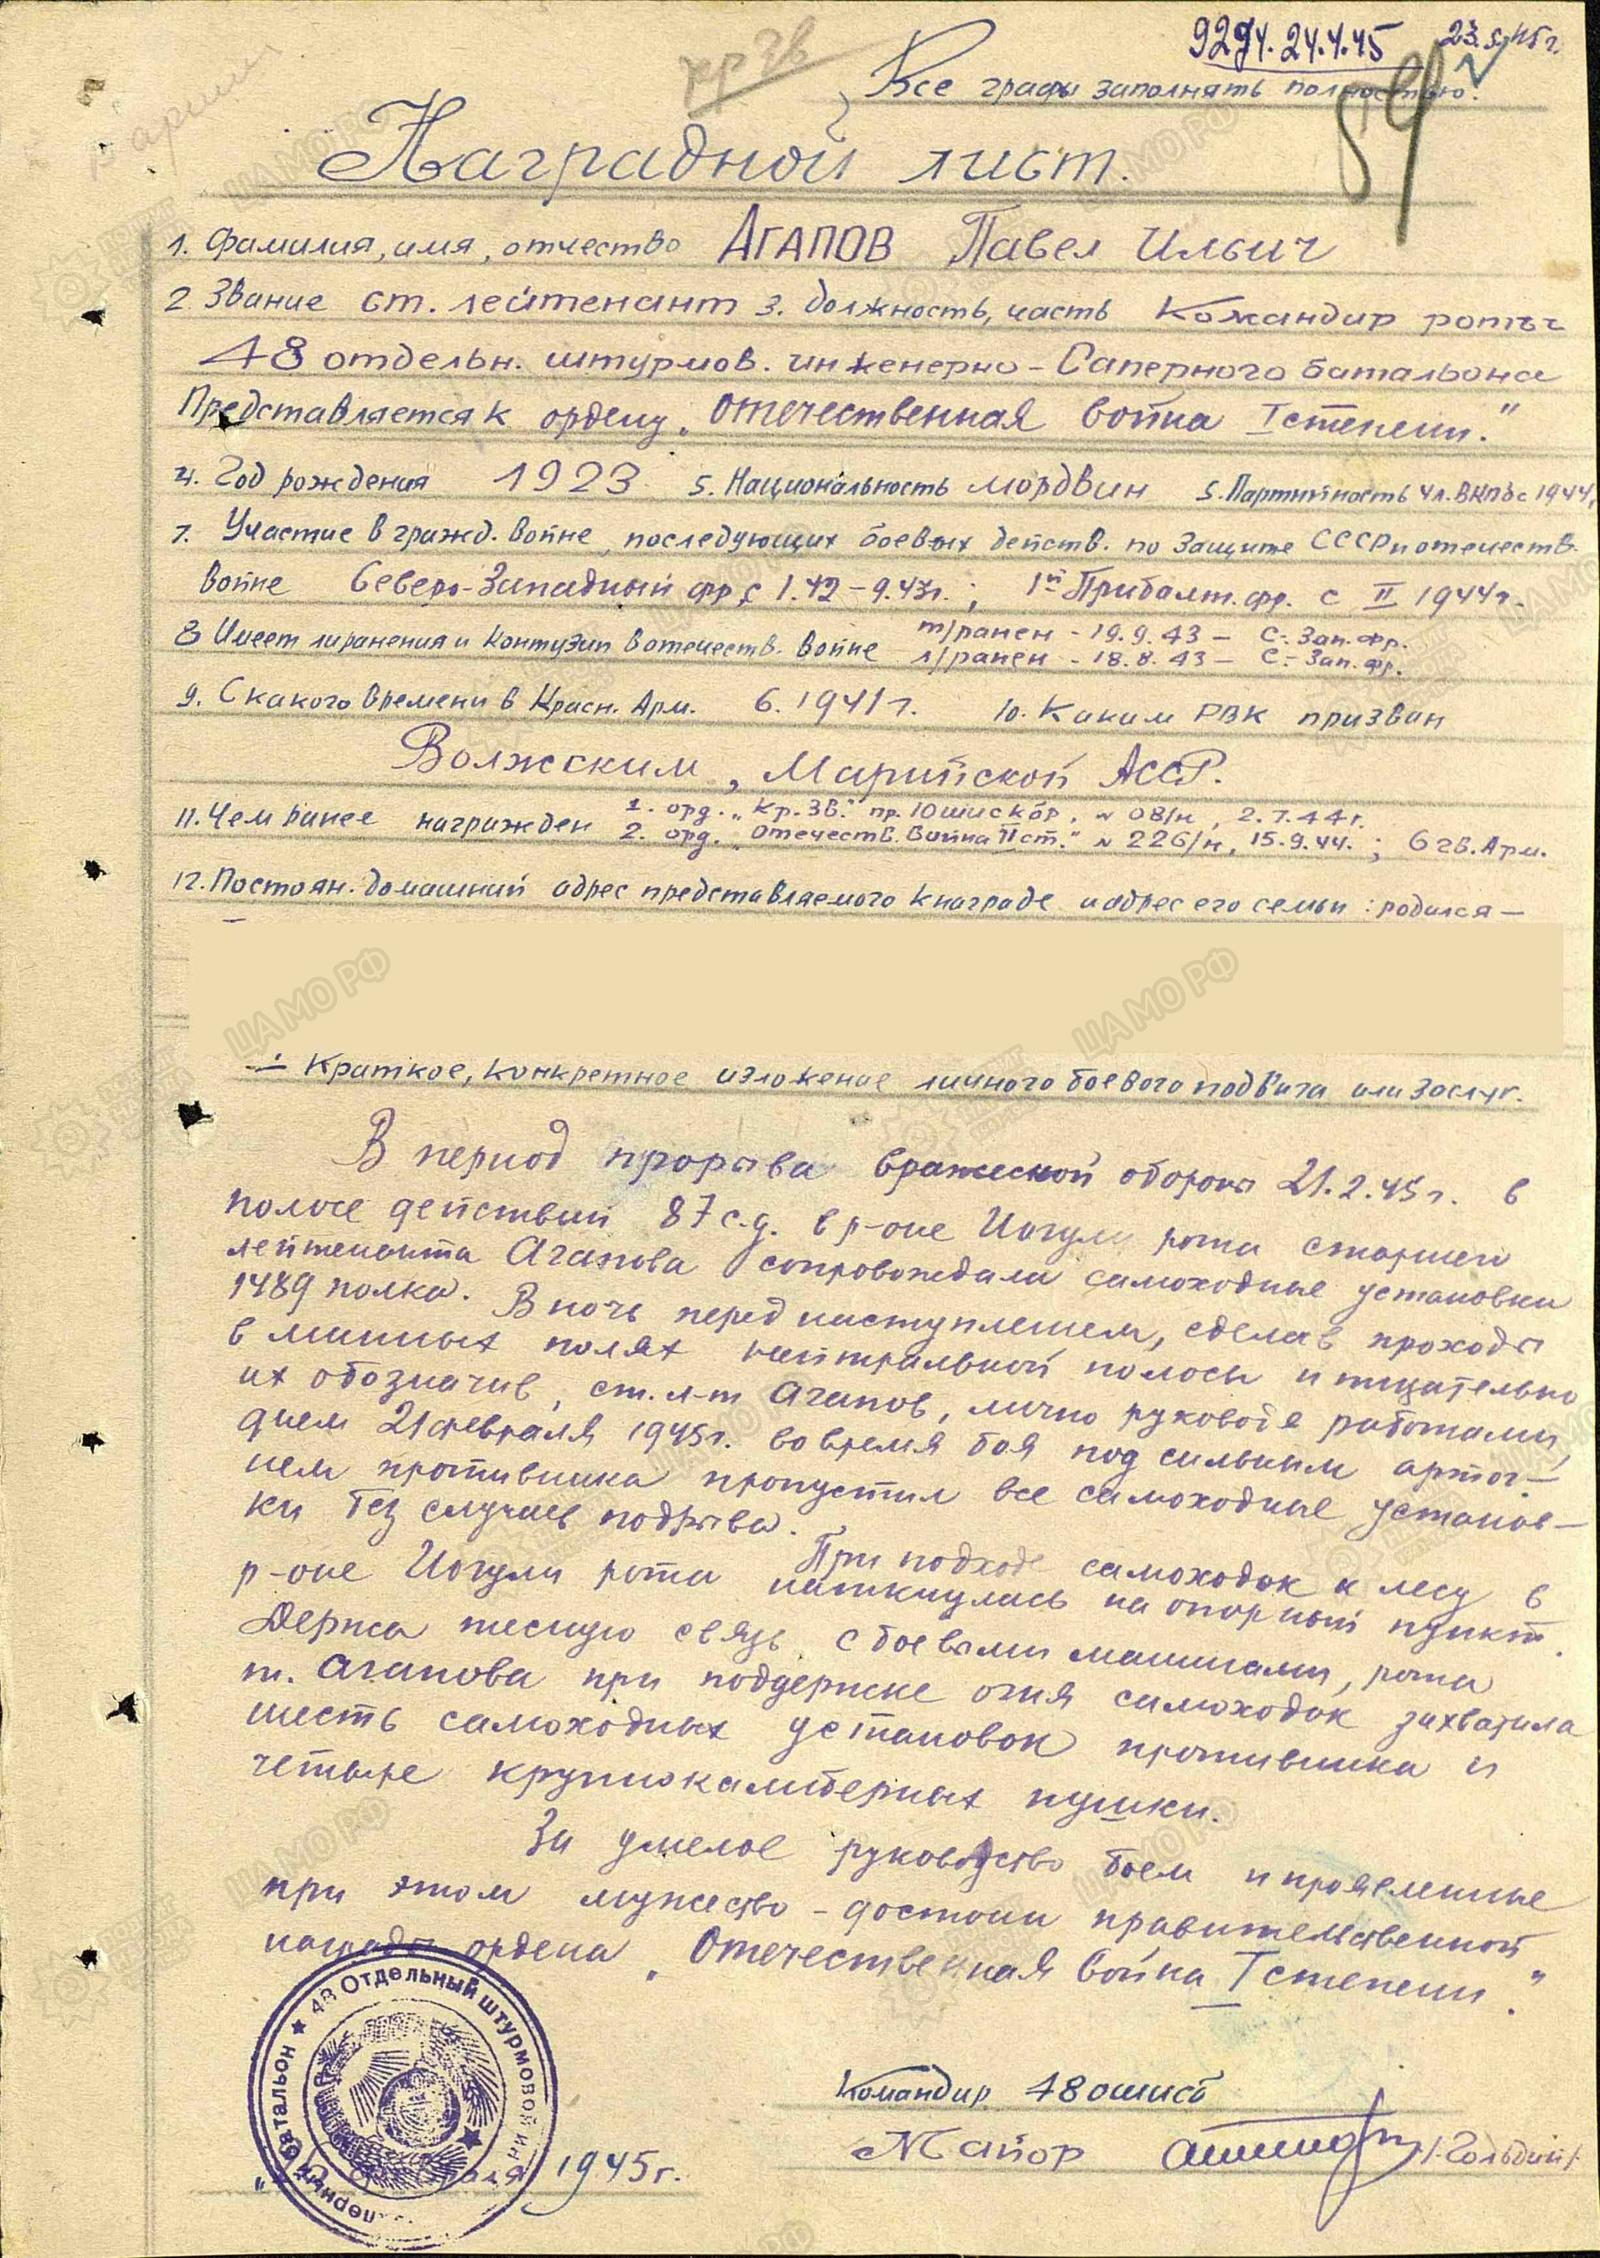 9294. 24.4.45 23.5.45г.
Все графы заполнять полностью.
54
Наградной лист.
1. Фамилия, имя, отчество АГАПОВ Павел Ильич
2. Звание ст. лейтенант 3. должность, часть Командир роты
48 отдельн. штурмов. инженерно-Саперного батальона
Представляется к ордену „Отечественная война I степени."
4. Год рождения 1923 5. Национальность мордвин 5. Партийность чл. ВКПб с 1944г.
7. Участие в гражд. войне, последующих боевых действ. по защите СССР и отечеств.
войне Северо-Западный фр. с 1.42-9.43г.; 1й Прибалт. фр. с II 1944г.
8 Имеет ли ранения и контузии в отечеств. войне т/ранен - 19.9.43 - С.-Зап. фр.
л/ранен - 18.8.43 - С.-Зап. фр.
9. С какого времени в Красн. Арм. 6. 1941г. 10. Каким РВК призван
Волжским, Марийской АССР.
11. Чем ранее награжден 1. орд. „Кр. Зв." пр. 10 шискбр, № 08/н, 2.7.44г.
2. орд. „Отечеств. Война II ст." № 226/н, 15.9.44.; 6 гв. Арм.
12. Постоян. домашний адрес представляемого к награде и адрес его семьи: родился —
Краткое, конкретное изложение личного боевого подвига или заслуг.
В период прорыва вражеской обороны 21.2.45г. в
полосе действий 87 с.д. в р-оне Иогули рота старшего
лейтенанта Агапова сопровождала самоходные установки
1489 полка. В ночь перед наступлением, сделав проходы
в минных полях нейтральной полосы и тщательно
их обозначив, ст. л-т Агапов, лично руководя работами,
днем 21 февраля 1945г. во время боя под сильным артог-
нем противника пропустил все самоходные установ-
ки без случаев подрыва.
При подходе самоходок к лесу в
р-оне Иогули рота наткнулась на опорный пункт.
Держа тесную связь с боевыми машинами, рота
т. Агапова при поддержке огня самоходок захватила
шесть самоходных установок противника и
четыре крупнокалиберных пушки.
За умелое руководство боем и проявленные
при этом мужество - достоин правительственной
награды ордена „Отечественная война I степени."
Командир 48 ошисб
Майор /Гольдин/
1945г.
48 Отдельный штурмовой ин
перный батальон
ЦАМО РФ